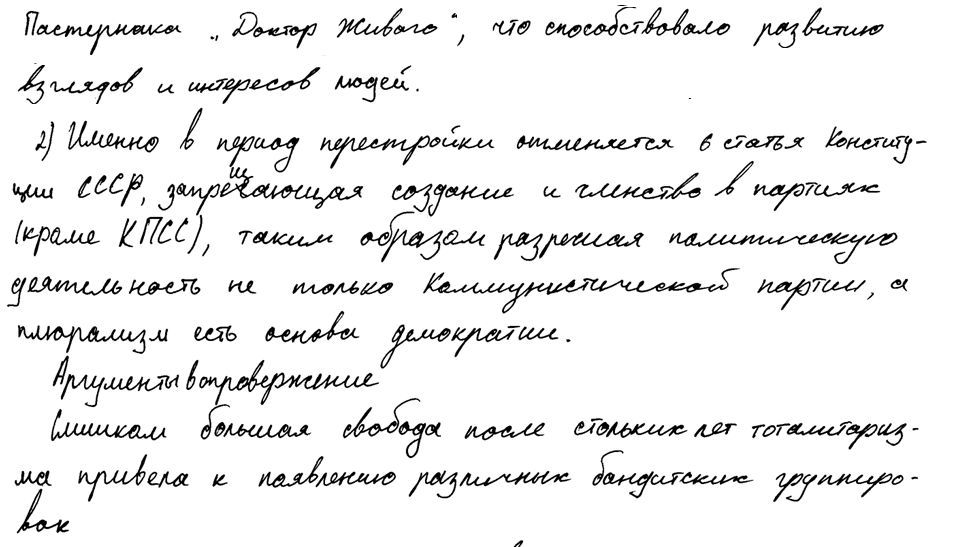 Пастернака „Доктор Живаго", что способствовало развитию
взглядов и интересов людей.
2) Именно в период перестройки отменяется 6 статья Конститу-
ции СССР, запрещающая создание и членство в партиях
(кроме КПСС), таким образом разрешая политическую
деятельность не только Коммунистической партии, а
плюрализм есть основа демократии.
Аргументы в опровержение
Слишком большая свобода после стольких лет тоталитариз-
ма привела к появлению различных бандитских группиро-
вок